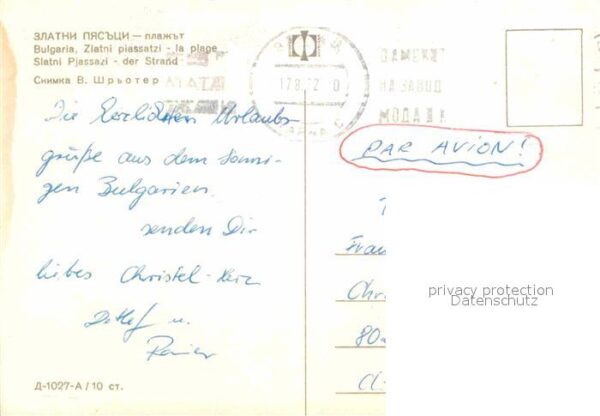 ЗЛАТНИ ПЯСЪЦИ — плажът
Bulgaria, Zlatni piassatzi - la plage
Slatni Pjassazi - der Strand
Снимка В. Шрьотер
17.8.72
ДАМСКАТА
НА ЗАВОД
МОДА
Die herzlichen Urlaubs
grüße aus dem sonni-
gen Bulgarien
senden Dir
liebes Christel-Herz
Detlef u.
Rainer
PAR AVION!
Frau
Chr
80
privacy protection
Datenschutz
Д-1027-А / 10 ст.